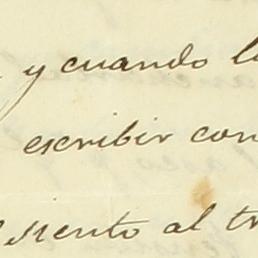 y cuando l
escribir con
siento al tr